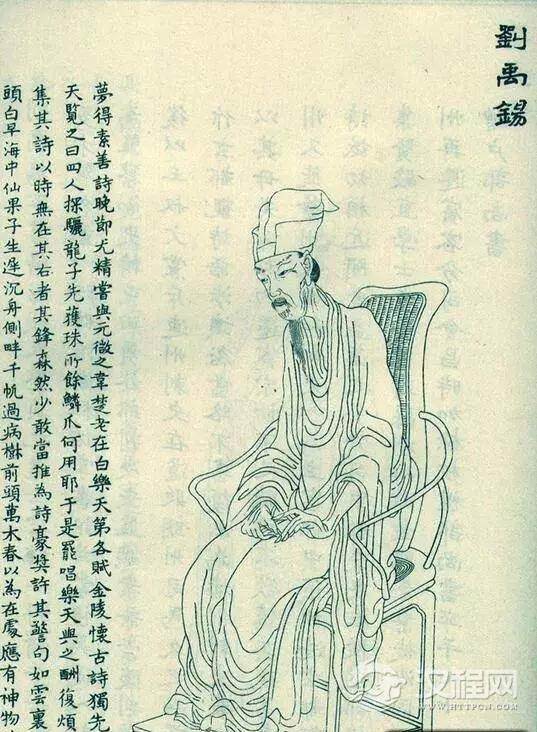 劉禹錫
夢得素善詩晚節尤精嘗與元微之韋楚老在白樂天第各賦金陵懷古詩獨先
天覽之曰四人探驪龍子先獲珠所餘鱗爪何用耶于是罷唱樂天與之酬復頻
集其詩以時無在其右者其鋒森然少敢當推為詩豪獎許其警句如雲裏
頭白早海中仙果子生遲沉舟側畔千帆過病樹前頭萬木春以為在處應有神物
汉程网
WWW.HTTPCN.COM